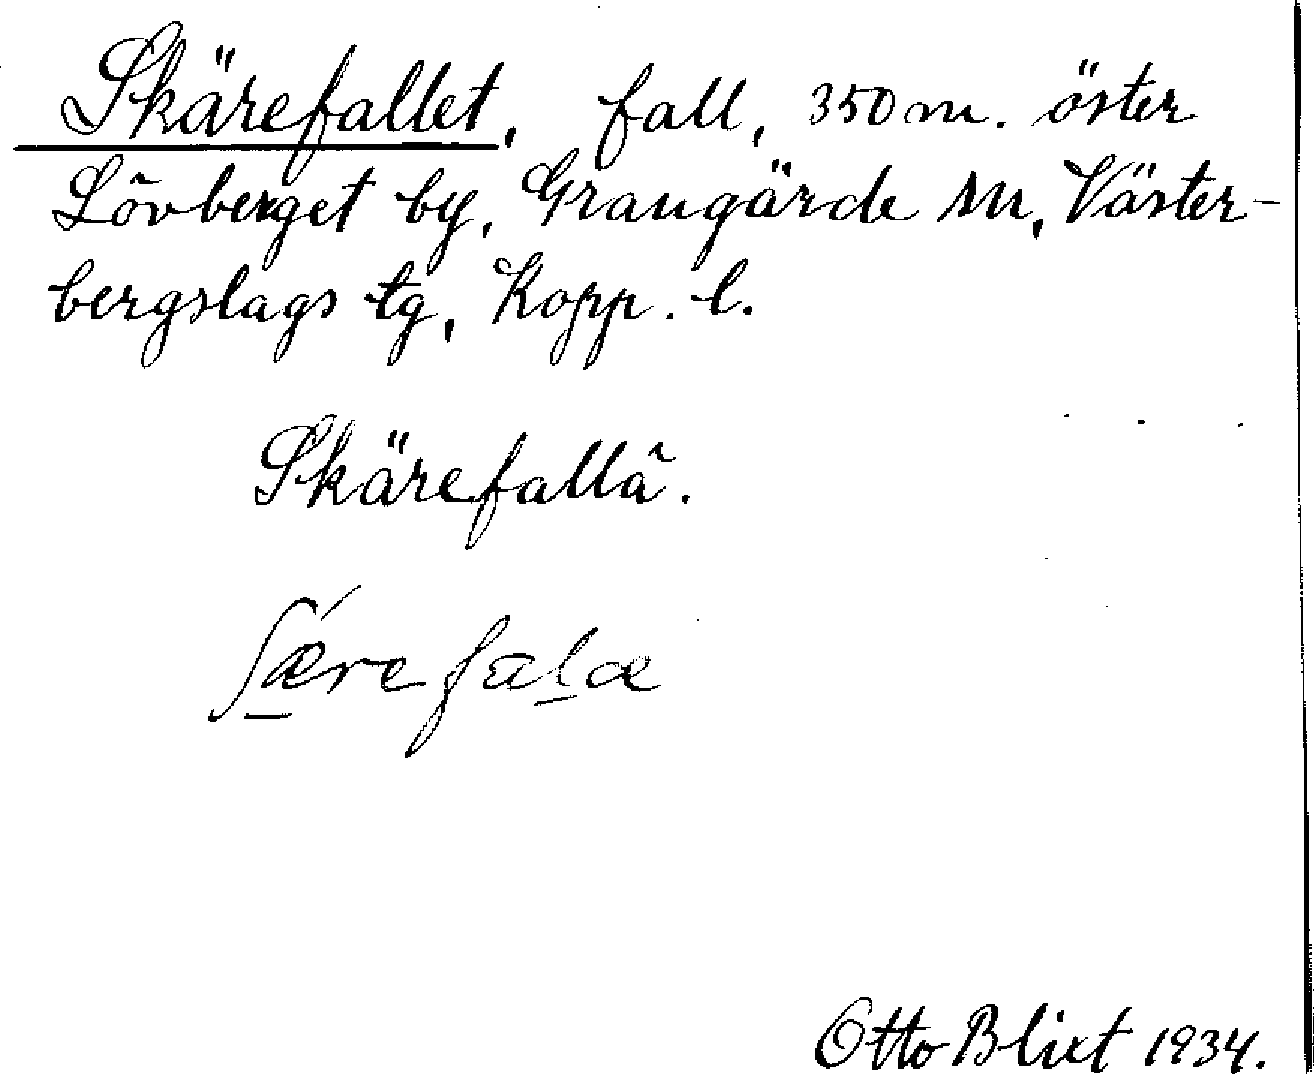 Skärefallet, fall, 350 m. öster
Lövberget by, Grangärde sn, Väster-
bergslags tg, Kopp. l.
Skärefallä.
ʃæ̱refal̲æ
Otto Blixt 1934.